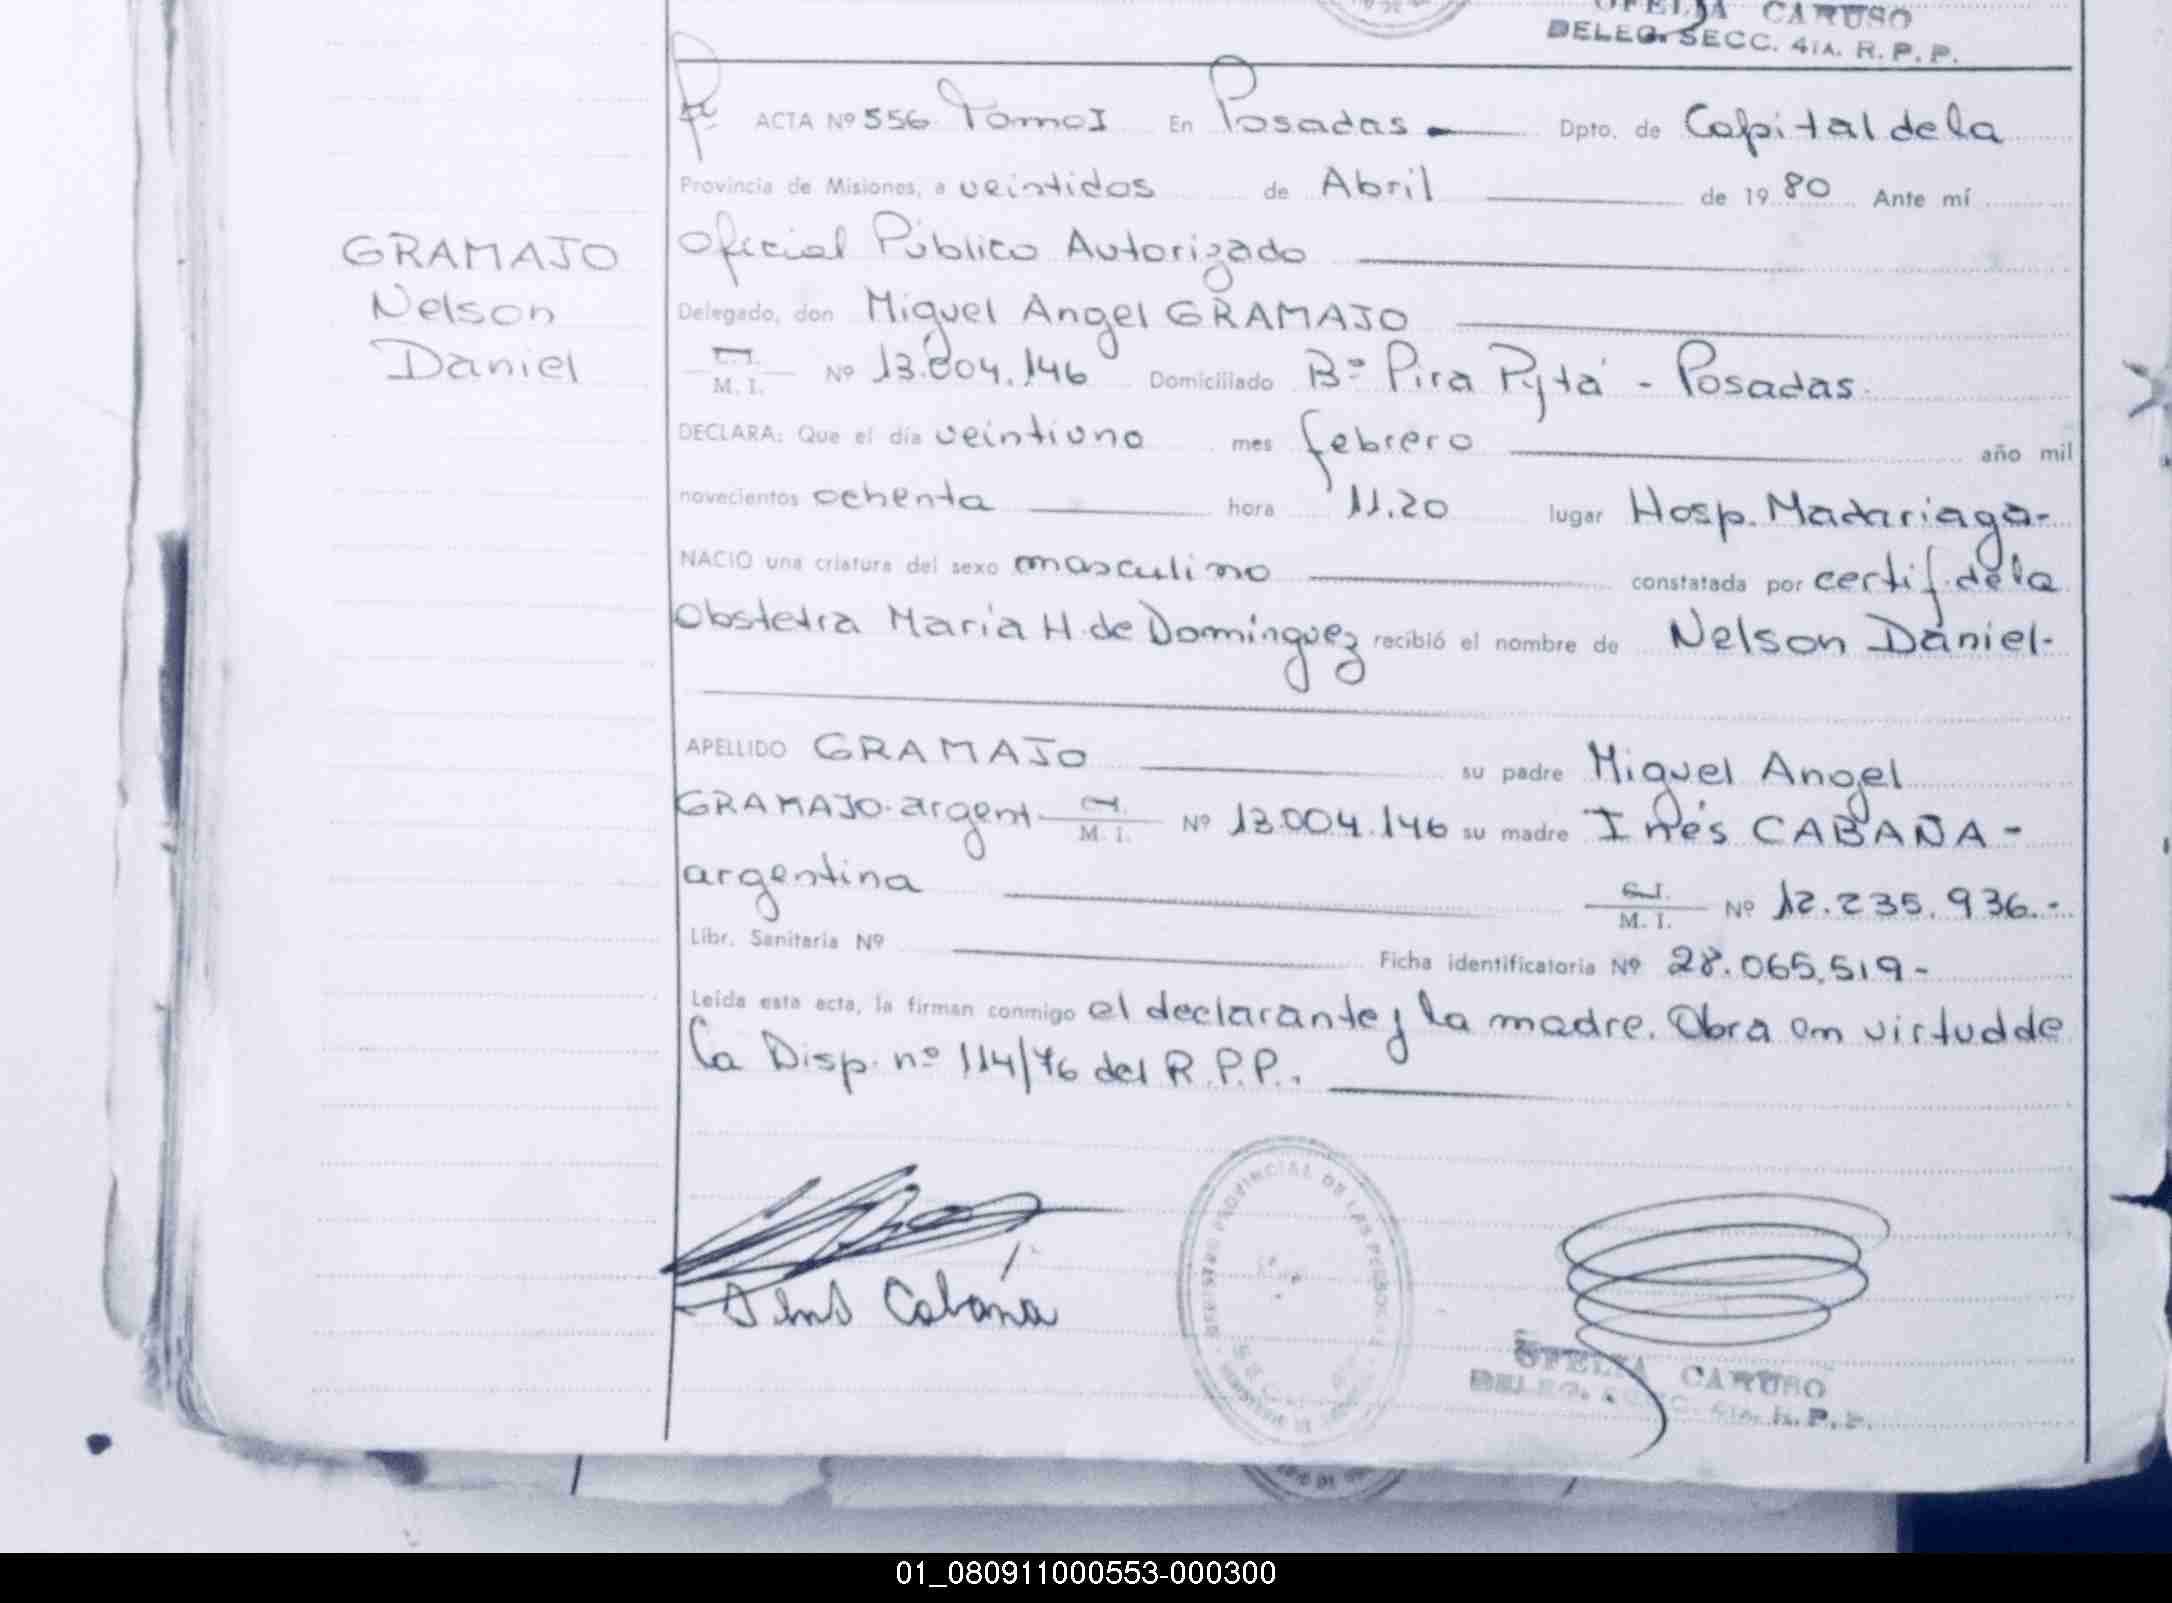 OFELIA CARUSO
DELEG. SECC. 4ta. R. P. P.
ACTA Nº 556 Tomo I En Posadas Dpto. de Capital de la
Provincia de Misiones, a veintidos de Abril de 19 80 Ante mí
Oficial Público Autorizado
GRAMAJO
Nelson
Daniel
Delegado, don Miguel Angel GRAMAJO
M. I. Nº 13.004.146 Domiciliado Bº Pira Pytá - Posadas.
DECLARA: Que el día veintiuno mes febrero año mil
novecientos ochenta hora 11.20 lugar Hosp. Madariaga-
NACIO una criatura del sexo masculino constatada por certif. de la
Obstetra María H. de Domínguez recibió el nombre de Nelson Daniel-
APELLIDO GRAMAJO su padre Miguel Angel
GRAMAJO-argent M. I. Nº 13.004.146 su madre Inés CABAÑA-
argentina M. I. Nº 12.235.936.-
Libr. Sanitaria Nº Ficha identificatoria Nº 28.065.519-
Leída esta acta, la firman conmigo el declarante y la madre. Obra en virtud de
la Disp. nº 114/76 del R.P.P..
REGISTRO PROVINCIAL DE LAS PERSONAS
Cabaña
OFELIA CARUSO
DELEG. SECC. 4ta. R. P. P.
01_080911000553-000300